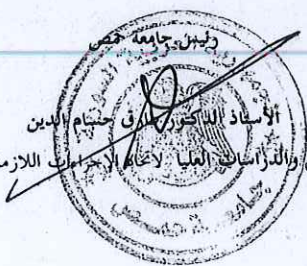 رئيس جامعة حمص
الأستاذ الدكتور طارق حسام الدين
والدراسات العليا لاتخاذ الإجراءات اللازمة
جامعة حمص